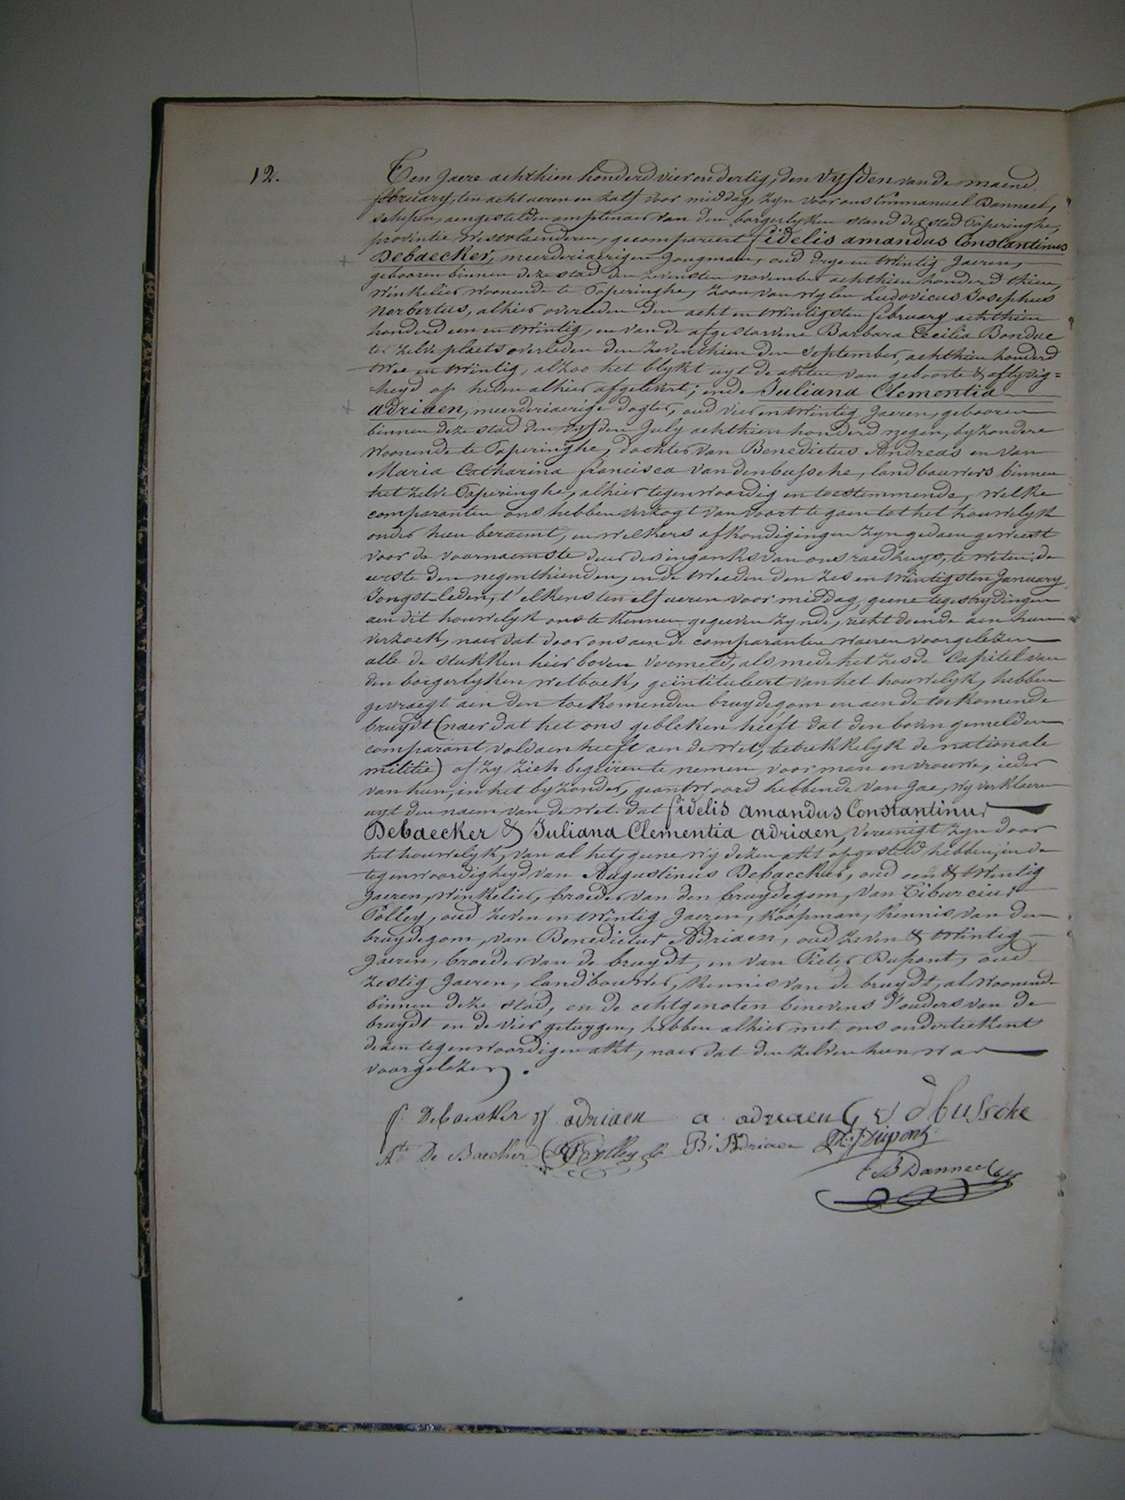 12.
Ten jaere achthien honderd vier en dertig, den vyfden van de maend
february, ten acht ueren en half voor middag, zyn voor ons Emmanuel Danneel,
schepen, aengestelden amptenaer van den borgerlyken stand der stad Poperinghe,
provintie Westvlaenderen, gecompareert fidelis amandus Constantinus
Debaecker, meerderjaerigen Jongman, oud drye en twintig Jaeren,
gebooren binnen deze stad den november achthien honderd thien,
Winkelier, woonende te Poperinghe, zoon van wylen Ludovicus Josephus
Norbertus, alhier overleden den acht en twintigsten february achthien
honderd een en twintig, en van de afgestorvene Barbara Cecilia Bonduc
ter zelve plaets overleden den zeventhien den September achthien honderd
twee en twintig, alzoo het blykt uyt de akten van geboorte & aflyvig=
heyd op heden alhier afgelevert; ende Juliana Clementia
adriaen, meerderjaerige dogter, oud vier en twintig Jaeren, gebooren
binnen deze stad den vyfden July achthien honderd negen, byzondere
woonende te Poperinghe, dochter van Benedictus Andreas en van
Maria Catharina francisca vandenbussche, landbouwers binnen
het zelve Poperinghe, alhier tegenwoordig en toestemmende, welke
comparanten ons hebben verzogt van voort te gaen tot het houwelyk
onder hun beraemt, en welkers afkondigingen zyn gedaen geweest
voor de voornaemste deur des ingankx van ons raedhuys, te weten: de
eerste den negenthienden, en de tweeden den zes en twintigsten January
Jongstleden, t'elkens ten elf ueren voor middag, geene tegenstrydingen
aen dit houwelyk ons te kennen gegeven zynde, recht doende aen hun
verzoek, naer dat door ons aen de comparanten waeren voorgelezen
alle de stukken hier boven vermeld, als mede het zesde Capitel van
den borgerlyken wetboek, geïntituleert van het houwelyk, hebben
gevraegt aen den toekomenden bruydegom en aen de toekomende
bruydt (naer dat het ons gebleken heeft dat den boven gemelden
comparant voldaen heeft aen de wet, betrekkelyk de nationale
militie) of zy zich begeiren te nemen voor man en vrouwe, ieder
van hun, in het byzonder, geantwoord hebbende van Jae, wy verklaeren
uyt den naem van de wet dat fidelis amandus Constantinus
Debaecker & Juliana Clementia adriaen, vereenigt zyn door
het houwelyk, van al het geene wy dezen akt opgesteld hebben, in de
tegenwoordigheyd van Augustinus Debaecker, oud een & twintig
Jaeren, Winkelier, broeder van den bruydegom, van Tiburcius
Polley, oud zeven en twintig Jaeren, Koopman, Kennis van den
bruydegom, van Benedictus Adriaen, oud zeven & twintig
Jaeren, broeder van de bruydt, en van Pieter Dupont, oud
zestig Jaeren, landbouwer, Kennis van de bruydt, al woonende
binnen deze stad, en de echtgenoten benevens d'ouders van de
bruydt en de vier getuygen, hebben alhier met ons onderteekent
dezen tegenwoordigen akt, naer dat den zelven hun was
voorgelezen.
f. Debaecker J adriaen a adriaen dbussche
Ate De Baecker T Polley B: Adriaen Dupont
E Danneel